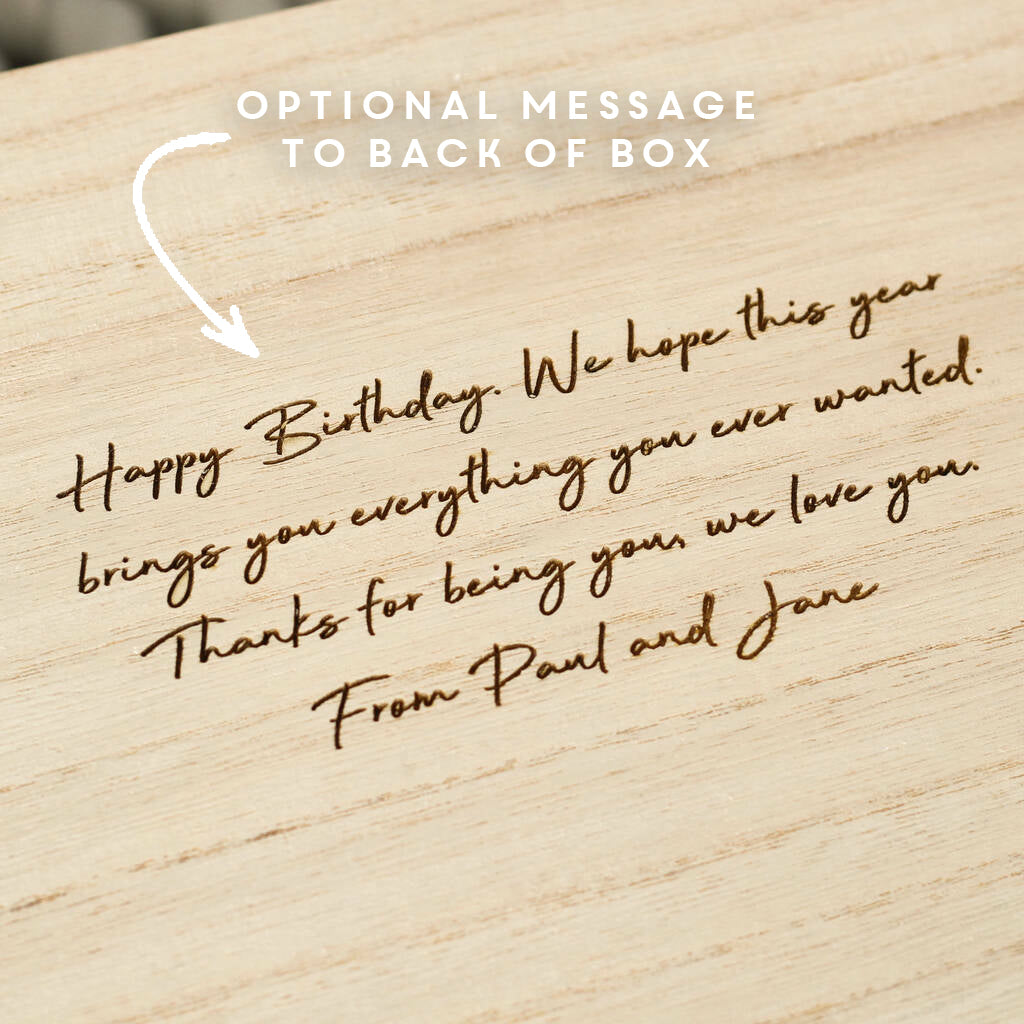 OPTIONAL MESSAGE
TO BACK OF BOX
Happy Birthday. We hope this year
brings you everything you ever wanted.
Thanks for being you, we love you.
From Paul and Jane